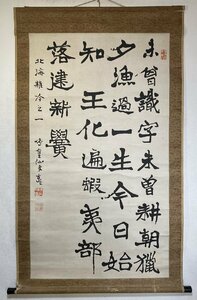 未曾識字未曾耕朝獵
夕漁過一生今日始
知王化遍蝦夷部
落建新黌
北海雜吟之一